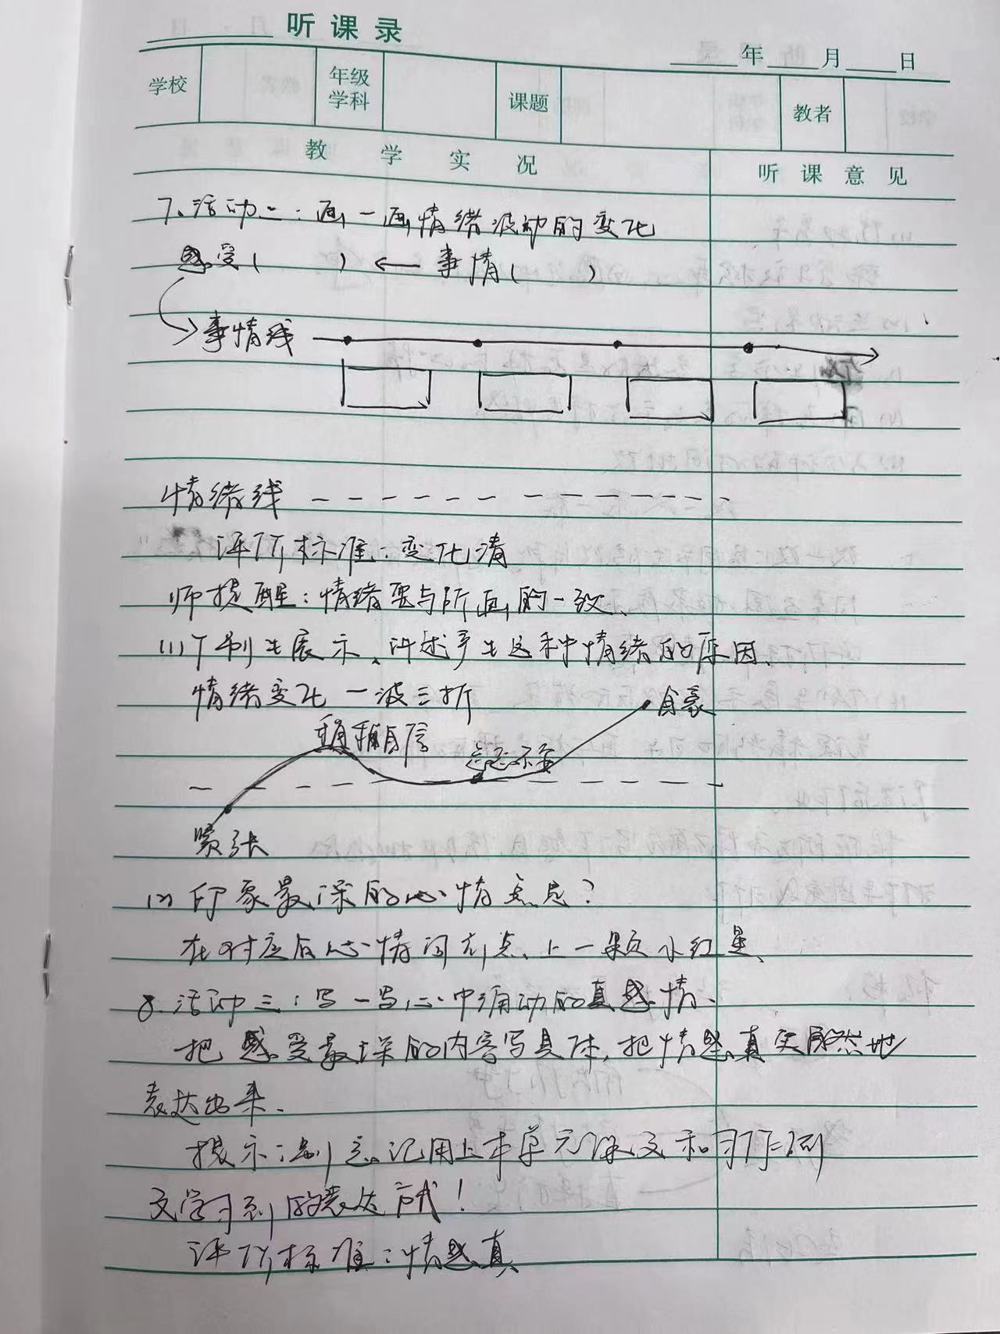 听课录
年 月 日
学校 年级学科 课题 教者
教学实况 听课意见
7、活动二：画一画情绪波动的变化
感受（ ）← 事情（ ）
事情线
情绪线
评价标准：变化清
师提醒：情绪要与所画的一致、
(1)个别生展示、讲述产生这种情绪的原因、
情绪变化 一波三折
自豪
稍稍自信
忐忑不安
紧张
(2)印象最深的心情是啥？
在对应的心情词上点上一颗小红星、
8、活动三：写一写心中涌动的真感情、
把感受最深的内容写具体，把情感真实自然地
表达出来、
提示：别忘记用上本单元课文和习作例
文学习到的表达方式！
评价标准：情感真